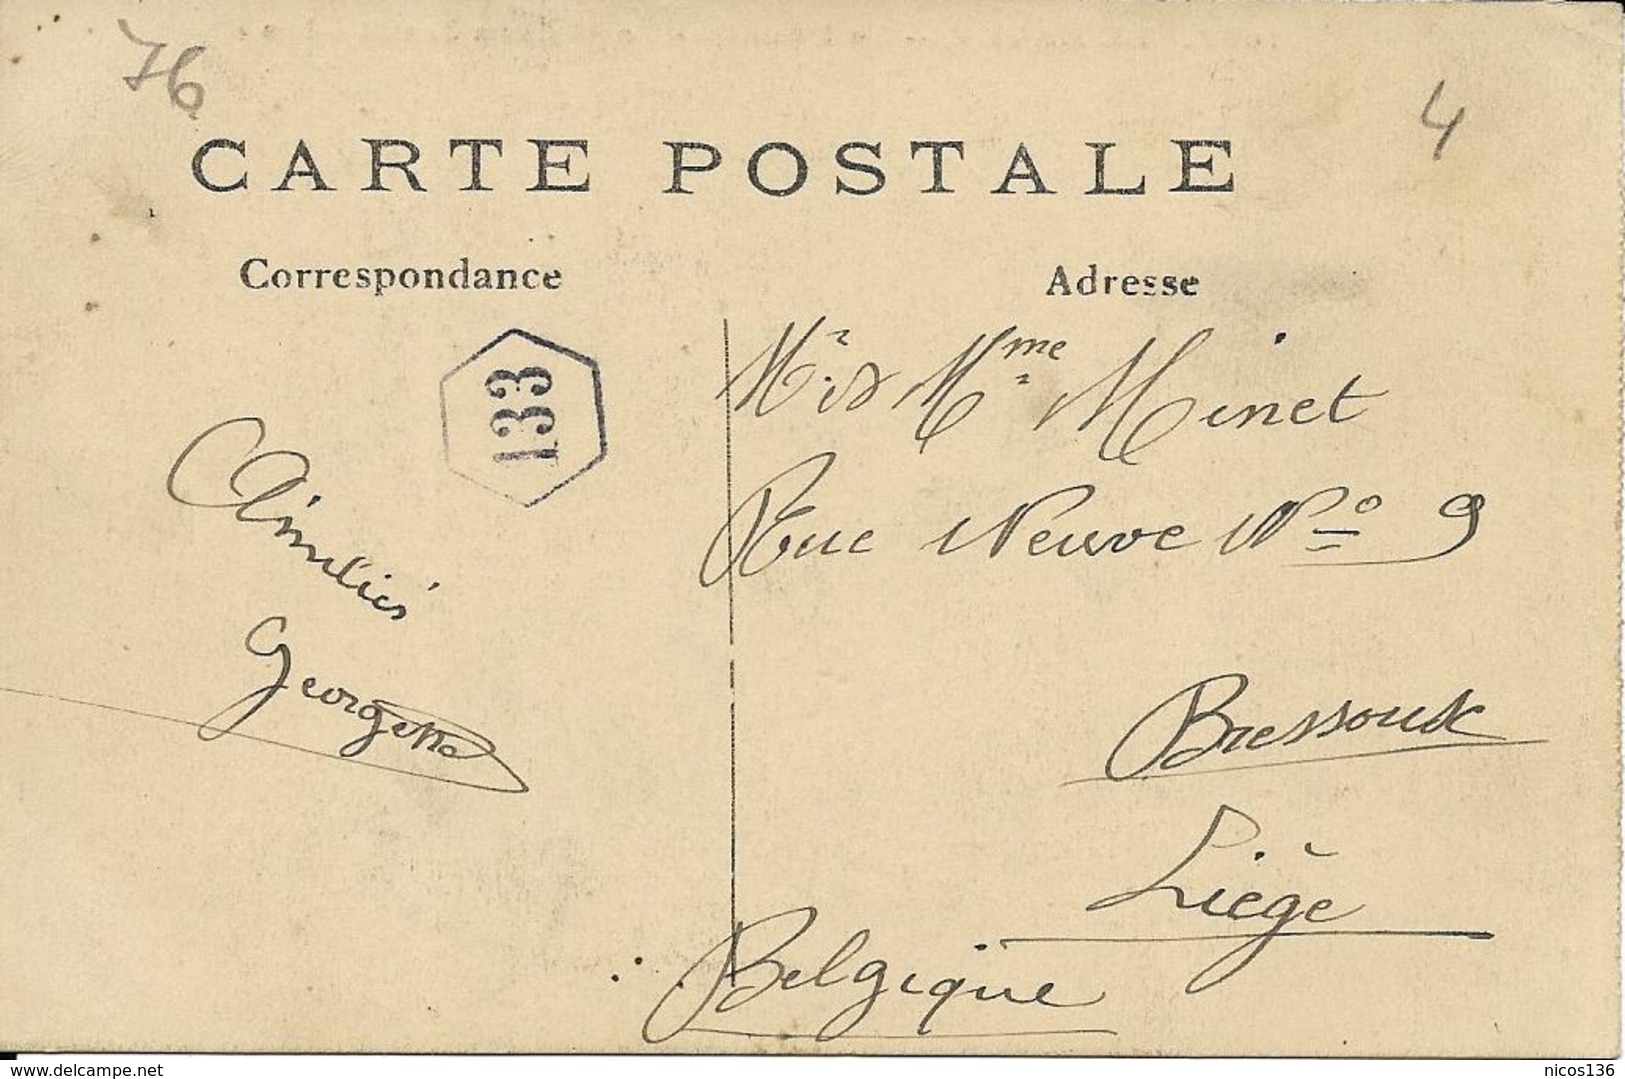 76
4
CARTE POSTALE
Correspondance
Adresse
133
Mr & Mme Minet
Rue Neuve No 9
Amitiés
Georgette
Bressoux
Liège
Belgique
www.delcampe.net
nicos136